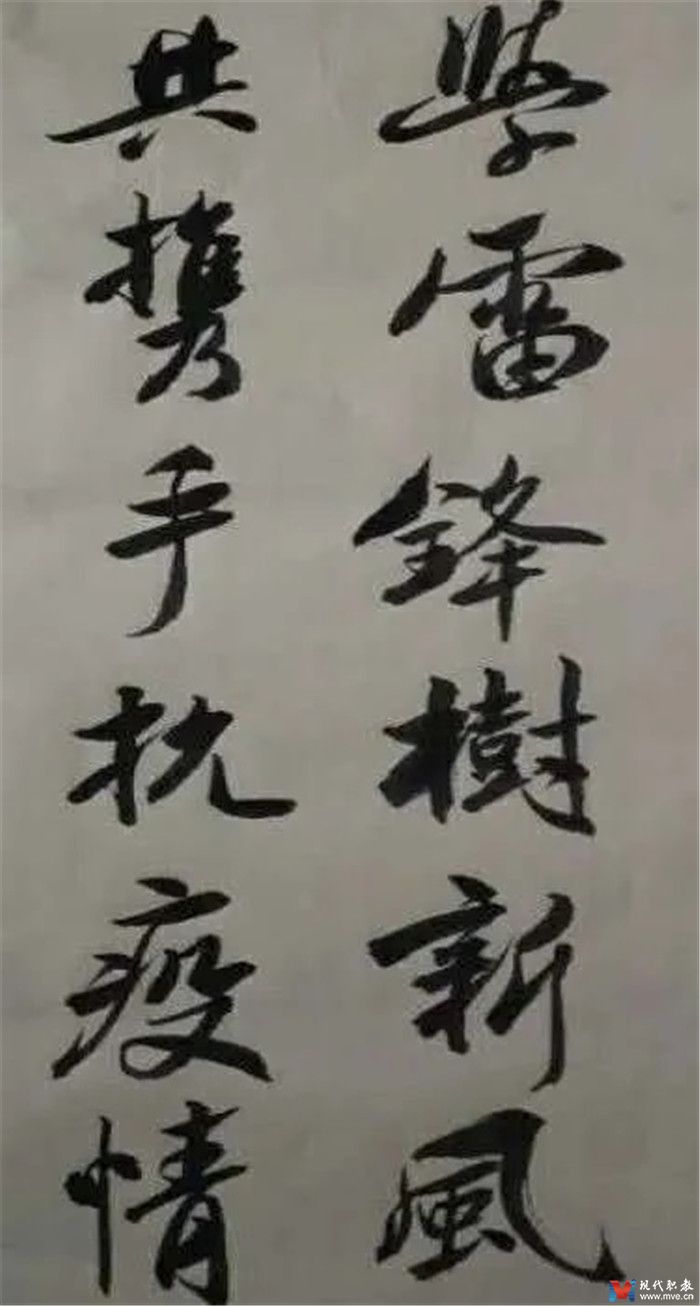 學雷鋒樹新風
共攜手抗疫情
现代职教
www.mve.cn